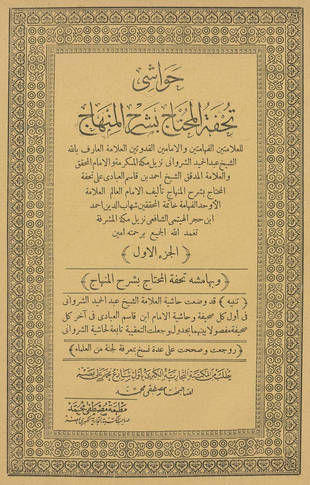 حواشى
تحفة المحتاج بشرح المنهاج
للعلامتين الفهامتين والامامين القدوتين العلامة العارف بالله
الشيخ عبد الحميد الشروانى نزيل مكة المكرمة والامام المحقق
والعلامة المدقق الشيخ احمد بن قاسم العبادى على تحفة
المحتاج بشرح المنهاج تأليف الامام العالم العلامة
الأوحد الفهامة خاتمة المحققين شهاب الدين احمد
ابن حجر الهيتمى الشافعى نزيل مكة المشرفة
تغمد الله الجميع برحمته امين
(الجزء الاول)
(وبهامشه تحفة المحتاج بشرح المنهاج)
(تنبيه) قد وضعت حاشية العلامة الشيخ عبد الحميد الشروانى
فى أول كل صحيفة وحاشية الامام ابن قاسم العبادى فى آخر كل
صحيفة مفصولا بينهما بجدول وجعلت التعقيبة تابعة لحاشية الشروانى
(روجعت وصححت على عدة نسخ بمعرفة لجنة من العلماء)
يطلب من المكتبة التجارية الكبرى بأول شارع محمد على بمصر
لصاحبها مصطفى محمد
مطبعة مصطفى محمد